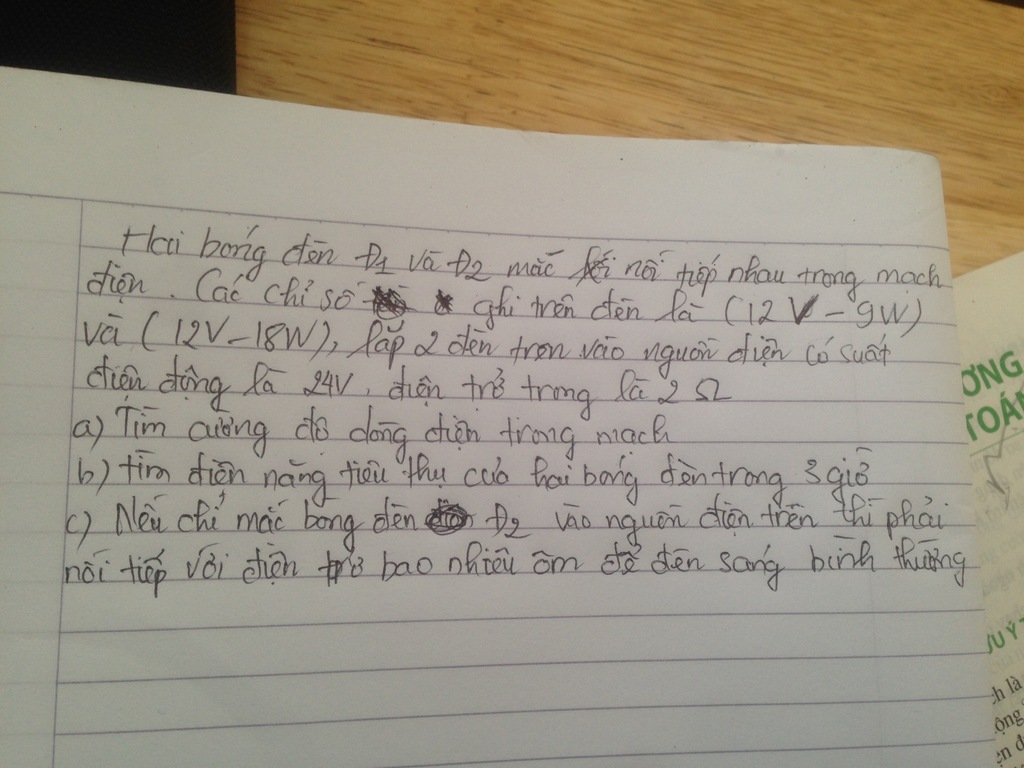 Hai bóng đèn Đ1 và Đ2 mắc nối tiếp nhau trong mạch
điện. Các chỉ số ghi trên đèn là (12V - 9W)
và (12V-18W), lắp 2 đèn trên vào nguồn điện có suất
điện động là 24V, điện trở trong là 2 Ω
a) Tìm cường độ dòng điện trong mạch
b) tìm điện năng tiêu thụ của hai bóng đèn trong 3 giờ
c) Nếu chỉ mắc bóng đèn Đ2 vào nguồn điện trên thì phải
nối tiếp với điện trở bao nhiêu ôm để đèn sáng bình thường
ƠNG
TOÁN
ƯU Ý